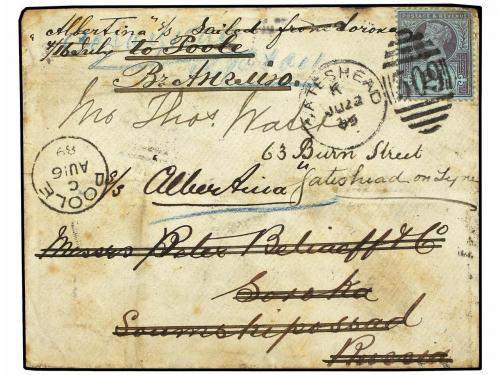 "Albertina" S/S, Sailed from Soroka
7/16 July to Poole
Mr Thos. Watt
63 Burn Street
S/S Albertina Gateshead on Tyne
Messrs Peter Beliaeff & Co
Soroka
Soumskipossad
Russia
GATESHEAD
K
JU 22
89
POOLE
C
AU 16
89
POSTAGE & REVENUE